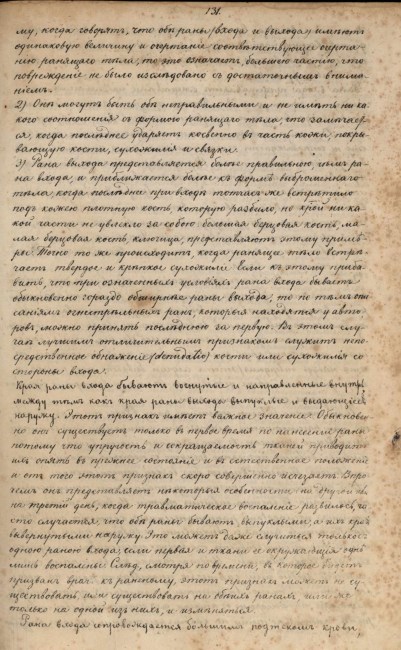 131.
му, когда говорятъ, что обѣ раны (входа и выхода) имѣютъ
одинаковую величину и очертаніе соотвѣтствующее очерта-
нію ранящаго тѣла, то это означаетъ, большею частію, что
поврежденіе не было изслѣдовано съ достаточнымъ внима-
ніемъ.
2) Онѣ могутъ быть обѣ неправильными и не имѣть ника-
кого соотношенія съ формою ранящаго тѣла, что замѣчает-
ся, когда послѣднее ударяетъ косвенно въ часть кожи, покры-
вающую кости, сухожилія и связки.
3) Рана выхода представляется болѣе правильною, чѣмъ ра-
на входа, и приближается болѣе къ формѣ выброшеннаго
тѣла, когда послѣднее при входѣ тотчасъ же встрѣтило
подъ кожею плотную кость, которую разбило, но крой ни ка-
кой части не увлекло за собою большая берцовая кость, ма-
лая берцовая кость, ключица, представляютъ этому примѣ-
ры. Точно то же происходитъ, когда ранящее тѣло встрѣ-
чаетъ твердое и крѣпкое сухожиліе если къ этому приба-
вить, что при означенныхъ условіяхъ рана входа бываетъ
обыкновенно гораздо обширнѣе раны выхода, то по тѣмъ опи
саніямъ огнестрѣльныхъ ранъ, которыя находятся у авто-
ровъ, можно принять послѣднюю за первую. Въ этомъ слу-
чаѣ лучшимъ отличительнымъ признакомъ служитъ непо-
средственное обнаженіе (denudatio) кости или сухожилія со
стороны входа.
Края раны входа бываютъ вогнутые и направленные внутрь
между тѣмъ какъ края раны выхода выпуклые и выдающіеся
наружу. Этотъ признакъ имѣетъ важное значеніе. Обыкновен-
но онъ существуетъ только въ первое время по нанесеніи раны
потому что упругость и сокращаемость тканей приводитъ
ихъ опять въ прежнее состояніе и въ естественное положеніе
и отъ того этотъ признакъ скоро совершенно исчезаетъ. Впро-
чемъ онъ представляетъ нѣкоторыя особенности на другой и
на третій день, когда травматическое воспаленіе развилось, ча-
сто случается, что обѣ раны бываютъ выпуклыми, а ихъ края
вывернутыми наружу. Это можетъ даже случиться только съ
одною раною входа, если первая и ткани ее окружающія одни
лишь воспалены. Слѣд., смотря по времени, въ которое будетъ
призванъ врачъ къ раненому, этотъ признакъ можетъ не су-
ществовать, или существовать на обѣихъ ранахъ, или
только на одной изъ нихъ, и измѣняться.
Рана входа сопровождается большимъ подтекомъ крови,